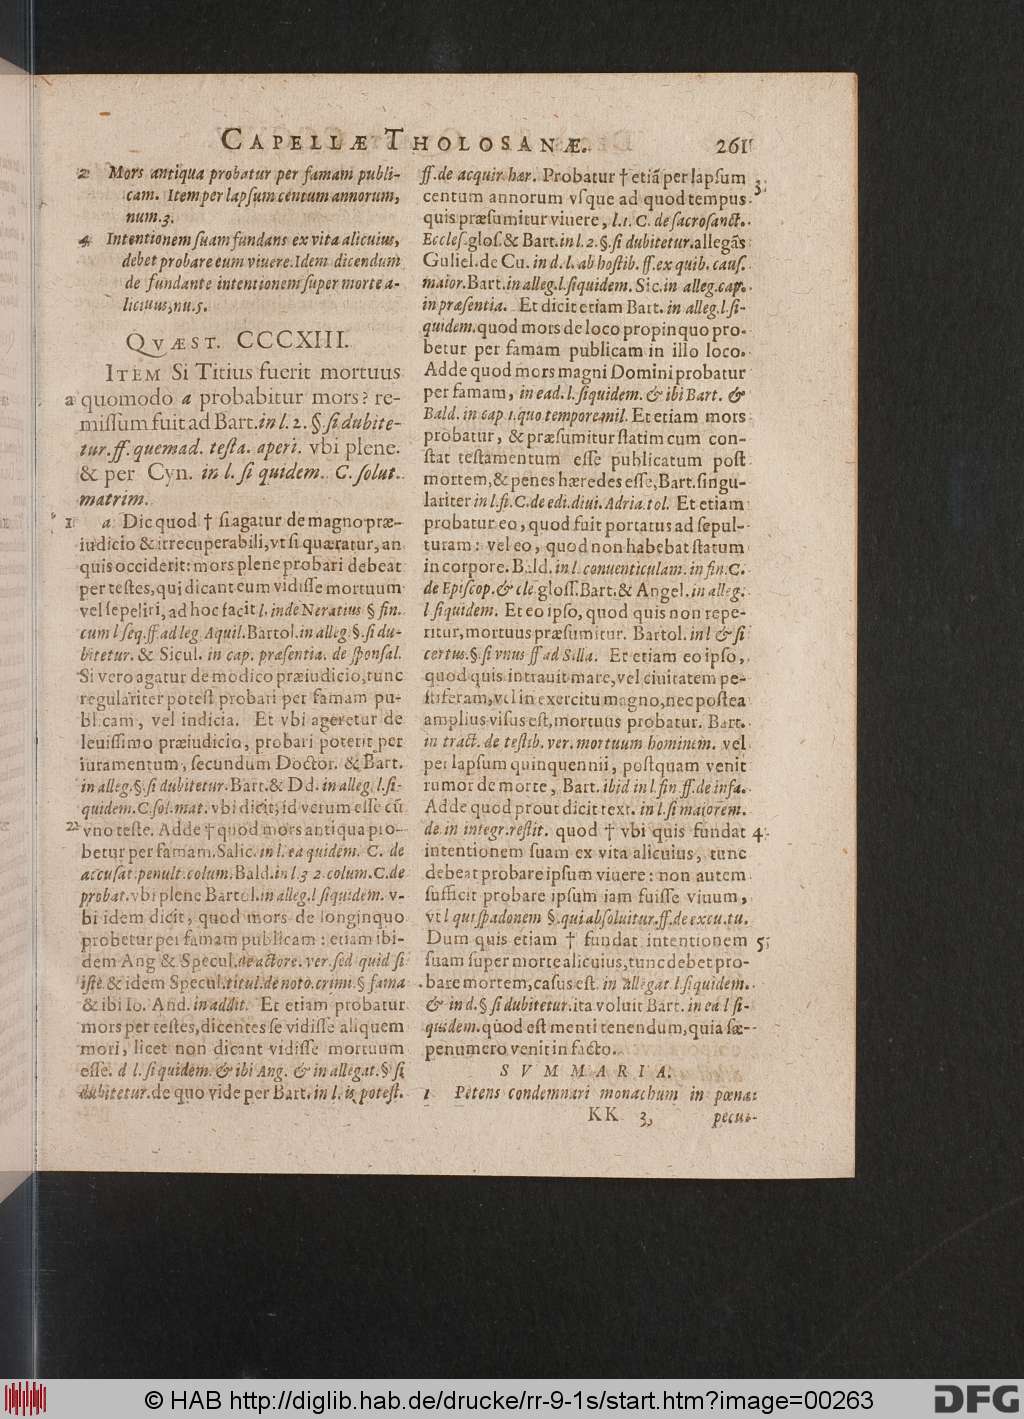 CAPELLÆ THOLOSANÆ. 261
2 Mors antiqua probatur per famam publi-
cam. Item per lapsum centum annorum,
num.3.
4 Intentionem suam fundans ex vita alicuius,
debet probare eum viuere. Idem dicendum
de fundante intentionem super morte a-
licuius, nu.5.
QVÆST. CCCXIII.
ITEM Si Titius fuerit mortuus
a quomodo a probabitur mors? re-
missum fuit ad Bart. in l. 2. § si dubite-
tur. ff. quemad. testa. aperi. vbi plene.
& per Cyn. in l. si quidem. C. solut.
matrim.
1 a Dic quod † si agatur de magno præ-
iudicio & irrecuperabili, vt si quæratur, an
quis occiderit: mors plene probari debeat
per testes, qui dicant eum vidisse mortuum
vel sepeliri, ad hoc facit l. inde Neratius § fin.
cum l seq. ff. ad leg Aquil. Bartol. in alleg §. si du-
bitetur. & Sicul. in cap. præsentia. de sponsal.
Si vero agatur de modico præiudicio, tunc
regulariter potest probari per famam pu-
blicam, vel indicia. Et vbi ageretur de
leuissimo præiudicio, probari poterit per
iuramentum, secundum Doctor. & Bart.
in alleg. §. si dubitetur. Bart. & Dd. in alleg. l. si-
quidem. C. sol. mat. vbi dicit, id verum esse cũ
2 vno teste. Adde † quod mors antiqua pro-
betur per famam. Salic. in l. ea quidem. C. de
accusat. penult. colum. Bald. in l. 3 2. colum. C. de
probat. vbi plene Bartol. in alleg. l siquidem. v-
bi idem dicit, quod mors de longinquo
probetur per famam publicam: etiam ibi-
dem Ang & Specul. de actore. ver. sed quid si
iste & idem Specul. titul. de noto. crimi. § fama
& ibi Io. And. in addit. Et etiam probatur
mors per testes, dicentes se vidisse aliquem
mori, licet non dicant vidisse mortuum
esse. d l. siquidem. & ibi Ang. & in allegat. § si
dubitetur. de quo vide per Bart. in l. is potest.
ff. de acquir. hær. Probatur † etiã per lapsum 3.
centum annorum vsque ad quod tempus
quis præsumitur viuere, l. 1. C. de sacrosanct.
Eccles. glos. & Bart. in l. 2. §. si dubitetur. allegãs
Guliel. de Cu. in d. l. ab hostib. ff. ex quib. caus.
maior. Bart. in alleg. l. siquidem. Sic. in alleg. cap.
in præsentia. Et dicit etiam Bart. in alleg. l. si-
quidem. quod mors de loco propinquo pro-
betur per famam publicam in illo loco.
Adde quod mors magni Domini probatur
per famam, in ead. l. siquidem. & ibi Bart. &
Bald. in cap 1. quo tempore mil. Et etiam mors
probatur, & præsumitur statim cum con-
stat testamentum esse publicatum post
mortem, & penes hæredes esse, Bart. singu-
lariter in l. fi. C. de edi. diui. Adria. tol. Et etiam
probatur eo, quod fuit portatus ad sepul-
turam: vel eo, quod non habebat statum
in corpore. Bald. in l. conuenticulam. in fin. C.
de Episcop. & cle gloss. Bart. & Angel. in alleg.
l siquidem. Et eo ipso, quod quis non repe-
ritur, mortuus præsumitur. Bartol. in l & si
certus. §. si vnus ff ad Silla. Et etiam eo ipso,
quod quis intrauit mare, vel ciuitatem pe-
stiferam, vel in exercitu magno, nec postea
amplius visus est, mortuus probatur. Bart.
in tract. de testib. ver. mortuum hominem. vel
per lapsum quinquennii, postquam venit
rumor de morte, Bart. ibid in l. fin ff. de infa.
Adde quod prout dicit text. in l. si maiorem.
de in integr. restit. quod † vbi quis fundat 4.
intentionem suam ex vita alicuius, tunc
debeat probare ipsum viuere: non autem
sufficit probare ipsum iam fuisse viuum,
vt l qui spadonem §. qui absoluitur. ff. de excu. tu.
Dum quis etiam † fundat intentionem 5.
suam super morte alicuius, tunc debet pro-
bare mortem, casus est. in allegat. l. siquidem.
& in d. § si dubitetur. ita voluit Bart. in ea l si-
quidem. quod est menti tenendum, quia sæ-
penumero venit in facto.
SVMMARIA.
1 Petens condemnari monachum in pœna:
KK 3, pecu-
© HAB http://diglib.hab.de/drucke/rr-9-1s/start.htm?image=00263
DFG